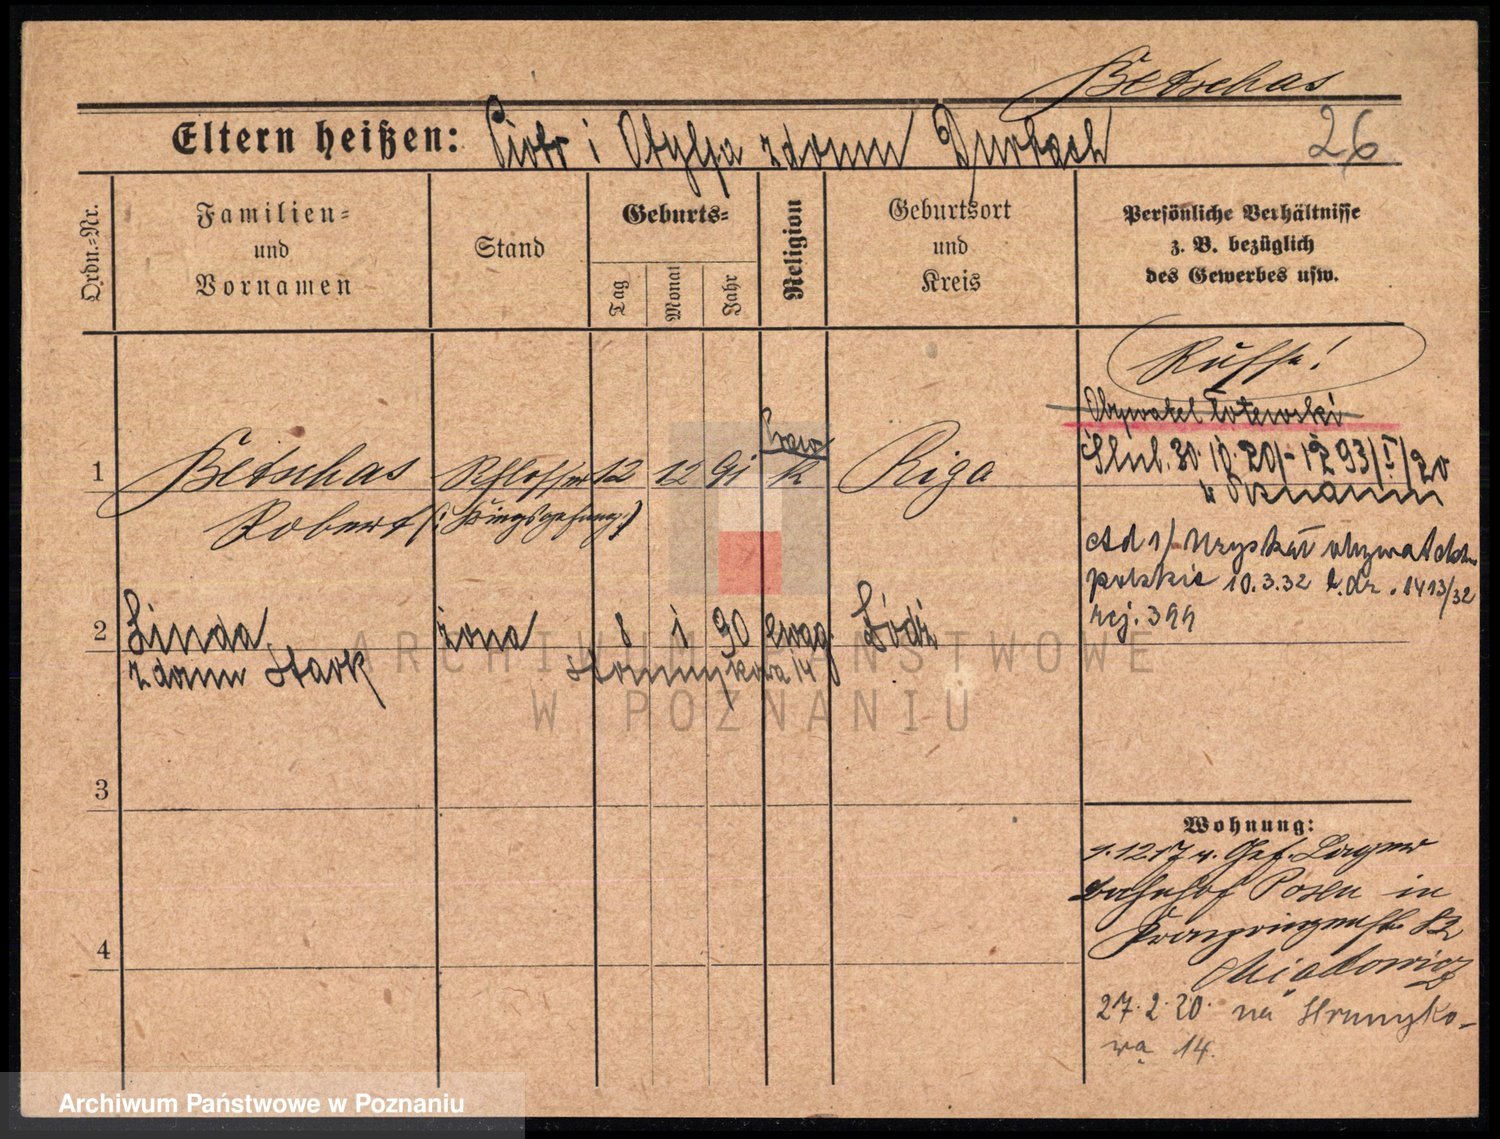 Betschas
Eltern heißen: Piotr i Otylja z domu Durbach
26
Ordn.=Nr.
Familien=
und
Vornamen
Stand
Geburts=
Tag
Monat
Jahr
Religion
Geburtsort
und
Kreis
Persönliche Verhältnisse
z. B. bezüglich
des Gewerbes usw.
Russe!
Obywatel łotewski
praw
1 Betschas Schlosser 12 12 91 k Riga
Robert (: Kriegsgefang :)
Ślub. 30.10.20
w Poznaniu
Ad 1/ Uzyskał obywatelstw
polskie 10.3.32 l.dz. 1413/32
rej. 399
2 Linda żona 8 1 90 ewag. Łódź
z domu Stark Strumykowa 14
3
4
Wohnung:
1.12.17 v. Gef. Lager
Bahnhof Posen in
Kronprinzenstr. 82
27.2.20. na Strumyko-
wa 14.
ARCHIWUM PAŃSTWOWE
W POZNANIU
Archiwum Państwowe w Poznaniu